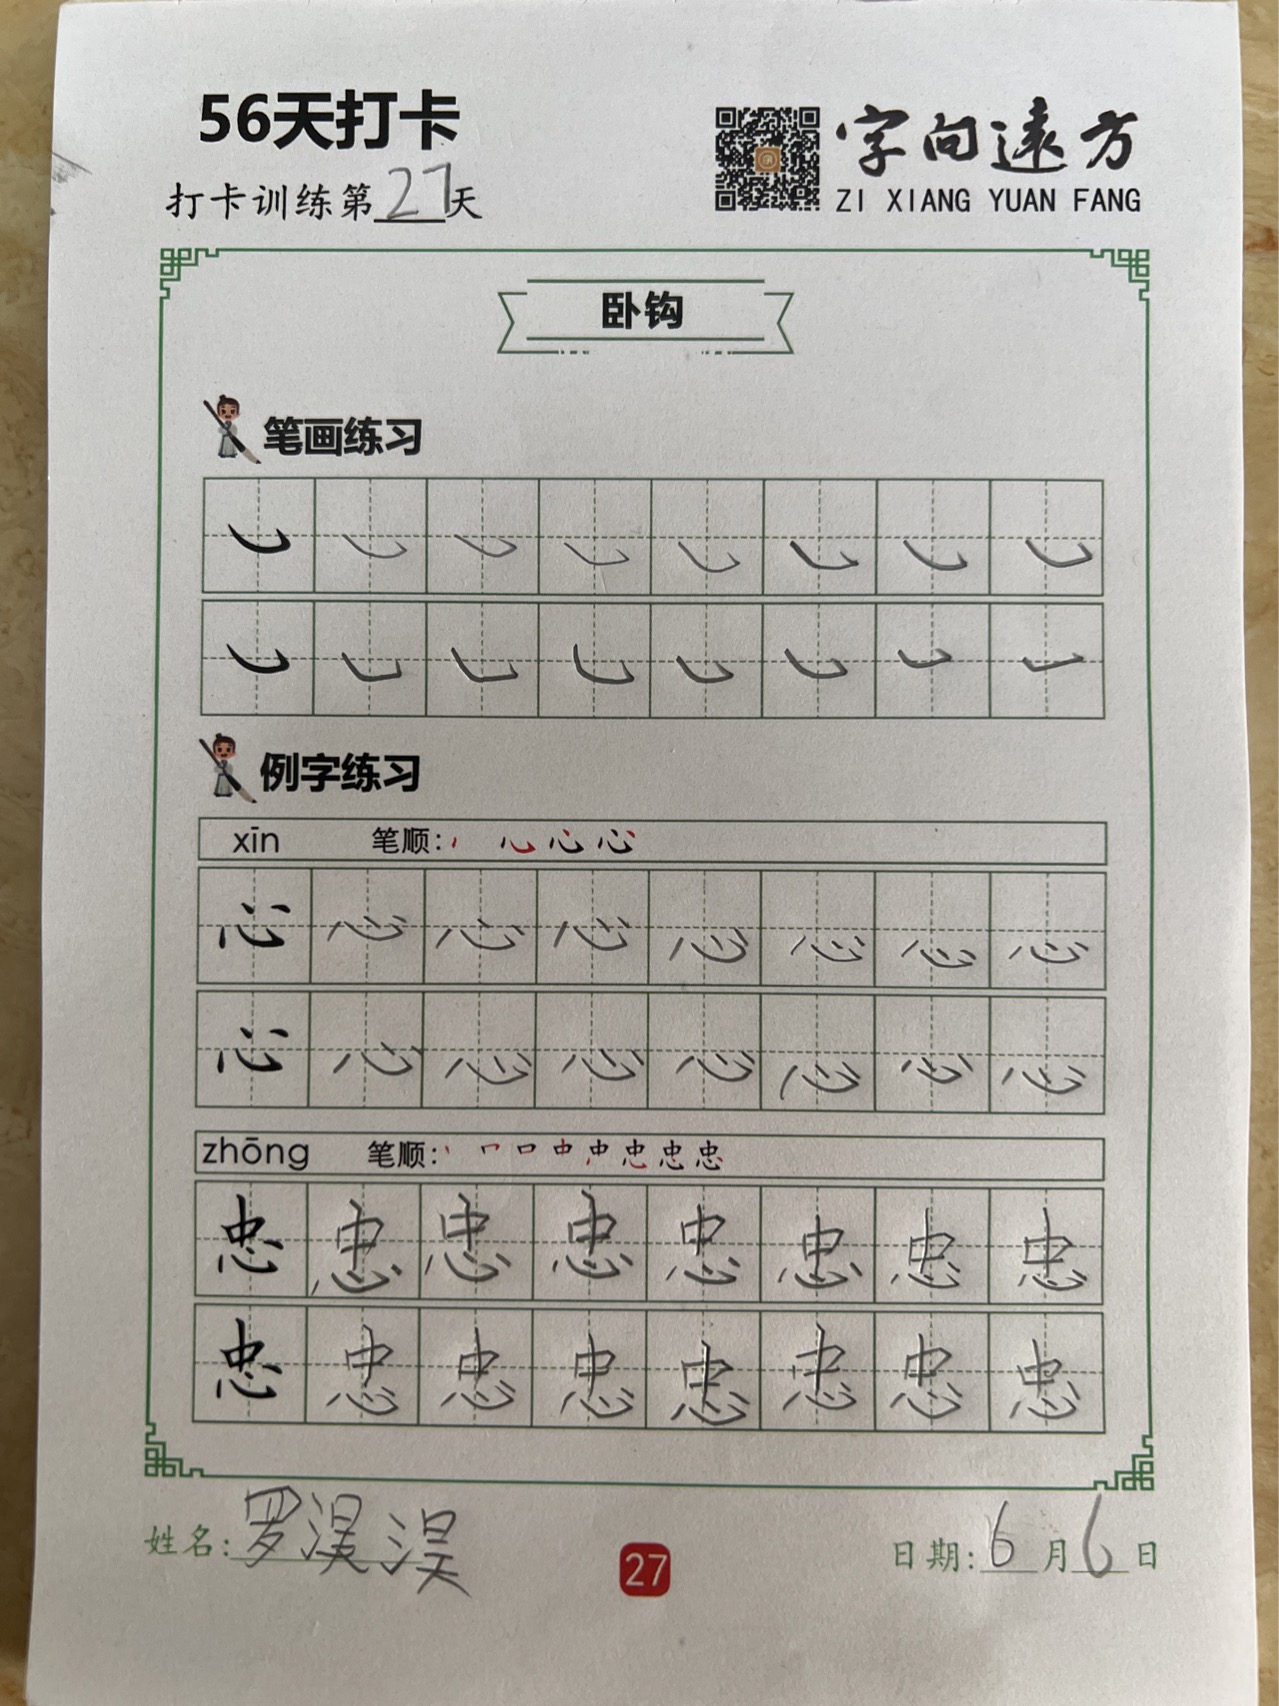 56天打卡
打卡训练第27天
字向遠方
ZI XIANG YUAN FANG
卧钩
笔画练习
例字练习
xīn 笔顺: 心 心
心 心 心 心 心 心 心 心
心 心 心 心 心 心 心 心
zhōng 笔顺: 口 中 忠 忠
忠 忠 忠 忠 忠 忠 忠 忠
忠 忠 忠 忠 忠 忠 忠 忠
姓名: 罗淏淏
27
日期: 6月6日